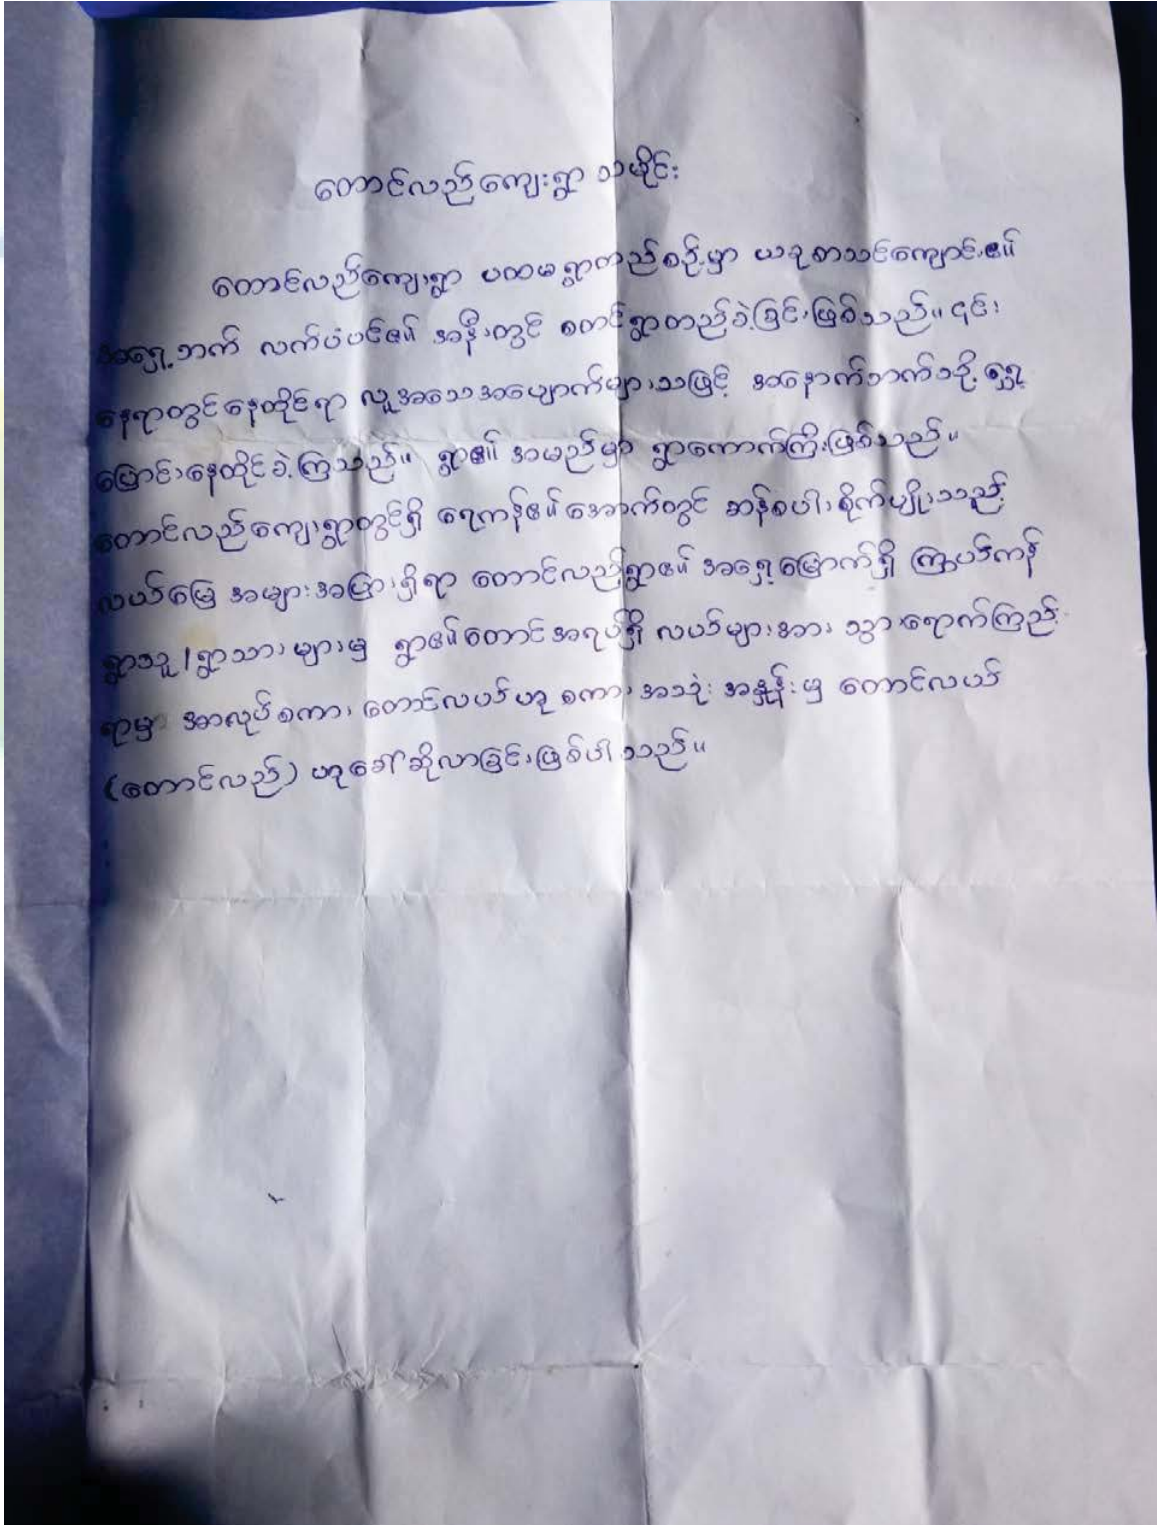 တောင်လည်ကျေးရွာ သမိုင်း
တောင်လည်ကျေးရွာ ပထမရွာတည်စဉ်မှာ ယခုစာသင်ကျောင်း၏
အရှေ့ဘက် လက်ပံပင်၏ အနီးတွင် စတင်ရွာတည်ခဲ့ခြင်းဖြစ်သည်။ ၎င်း
နေရာတွင်နေထိုင်ရာ လူအသေအပျောက်များသဖြင့် အနောက်ဘက်သို့ ရွှေ့
ပြောင်းနေထိုင်ခဲ့ကြသည်။ ရွာ၏ အမည်မှာ ရွာကောက်ကြီးဖြစ်သည်။
တောင်လည်ကျေးရွာတွင်ရှိ ရေကန်၏အောက်တွင် ဆန်စပါးစိုက်မျိုးသည့်
လယ်မြေ အများအပြားရှိရာ တောင်လည်ရွာ၏ အရှေ့မြောက်ရှိ ကြာပင်ကန်
ရွာသူ/ရွာသားများမှ ရွာ၏တောင်အရပ်ရှိ လယ်များအား သွားရောက်ကြည့်
ရာမှာ အာလုပ်စကား တောင်လယ်ဟု စကားအသုံးအနှုန်းမှ တောင်လယ်
(တောင်လည်) ဟုခေါ်ဆိုလာခြင်းဖြစ်ပါသည်။